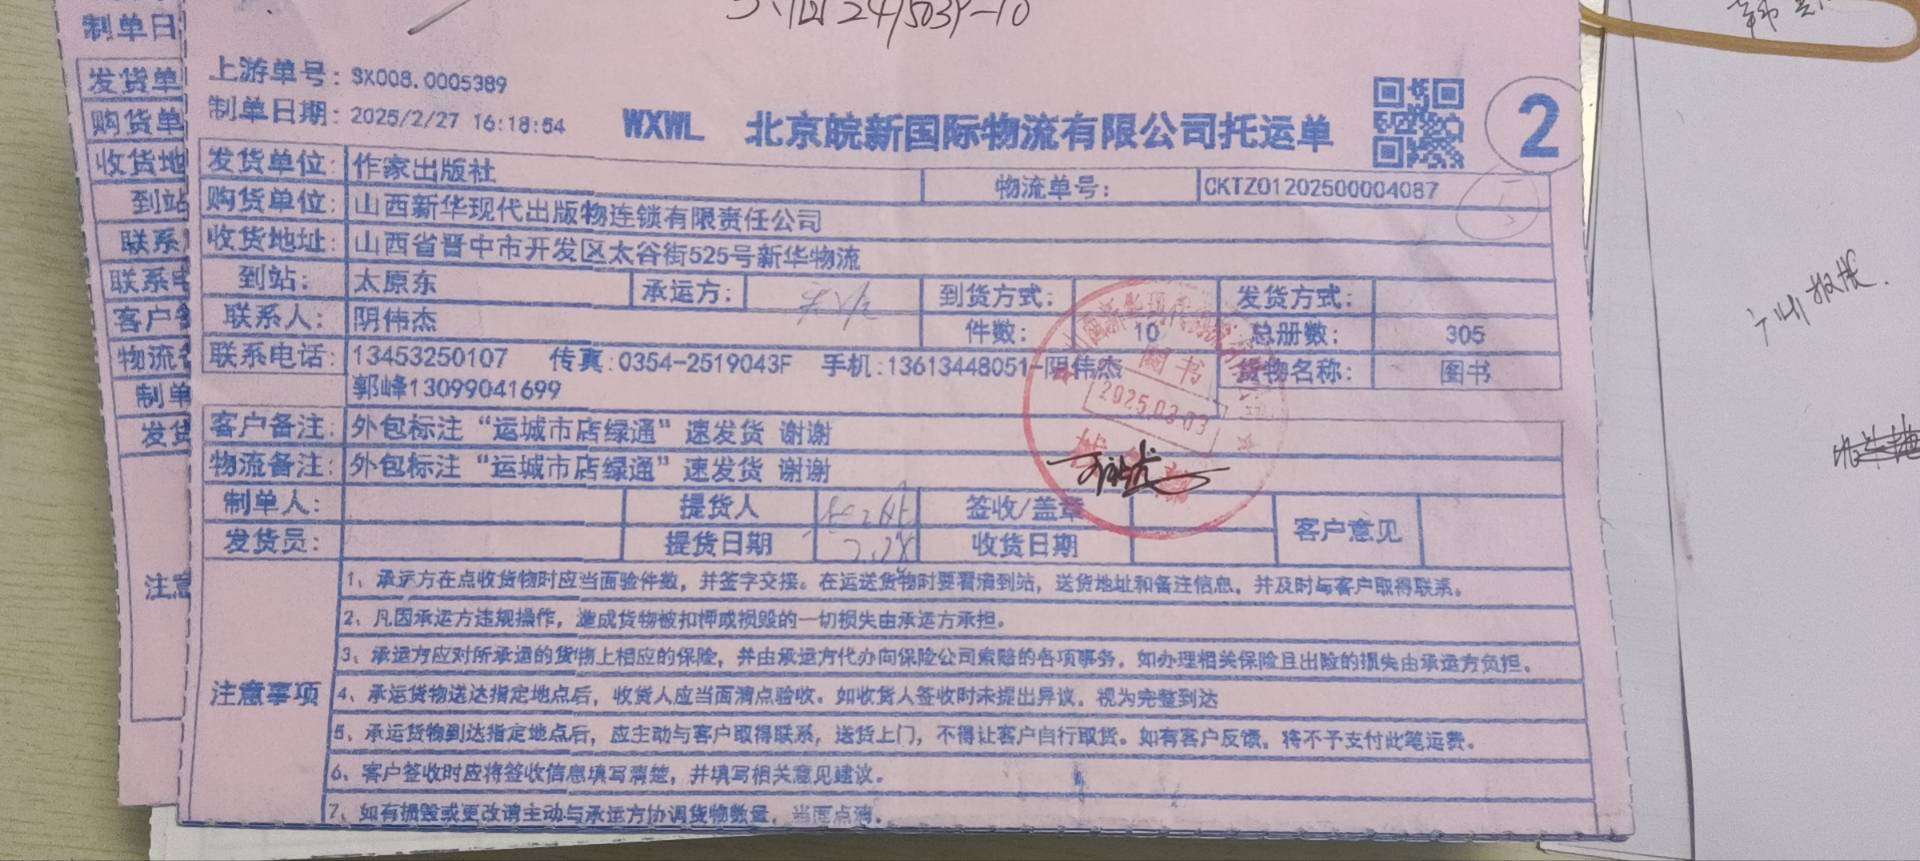 上游单号：SX008.0005389
制单日期：2025/2/27 16:18:54
WXWL 北京皖新国际物流有限公司托运单 2
发货单位： 作家出版社 物流单号： CKTZ01202500004087
购货单位： 山西新华现代出版物连锁有限责任公司
收货地址： 山西省晋中市开发区太谷街525号新华物流
到站： 太原东 承运方： 到货方式： 发货方式：
联系人： 阴伟杰 件数： 10 总册数： 305
联系电话： 13453250107 传真:0354-2519043F 手机:13613448051-阴伟杰 货物名称： 图书
郭峰13099041699
图书
2025.03.03
客户备注： 外包标注“运城市店绿通”速发货 谢谢
物流备注： 外包标注“运城市店绿通”速发货 谢谢
制单人： 提货人 签收/盖章 客户意见
发货员： 提货日期 2.28 收货日期
注意事项
1、承运方在点收货物时应当面验件数，并签字交接。在运送货物时要看清到站，送货地址和备注信息，并及时与客户取得联系。
2、凡因承运方违规操作，造成货物被扣押或损毁的一切损失由承运方承担。
3、承运方应对所承运的货物上相应的保险，并由承运方代办向保险公司索赔的各项事务，如办理相关保险且出险的损失由承运方负担。
4、承运货物送达指定地点后，收货人应当面清点验收。如收货人签收时未提出异议，视为完整到达
5、承运货物到达指定地点后，应主动与客户取得联系，送货上门，不得让客户自行取货。如有客户反馈，将不予支付此笔运费。
6、客户签收时应将签收信息填写清楚，并填写相关意见建议。
7、如有损毁或更改请主动与承运方协调货物数量，当面点清。
制单日
发货单
购货单
收货地
到站
联系
联系电
客户备
物流备
制单
发货
注意